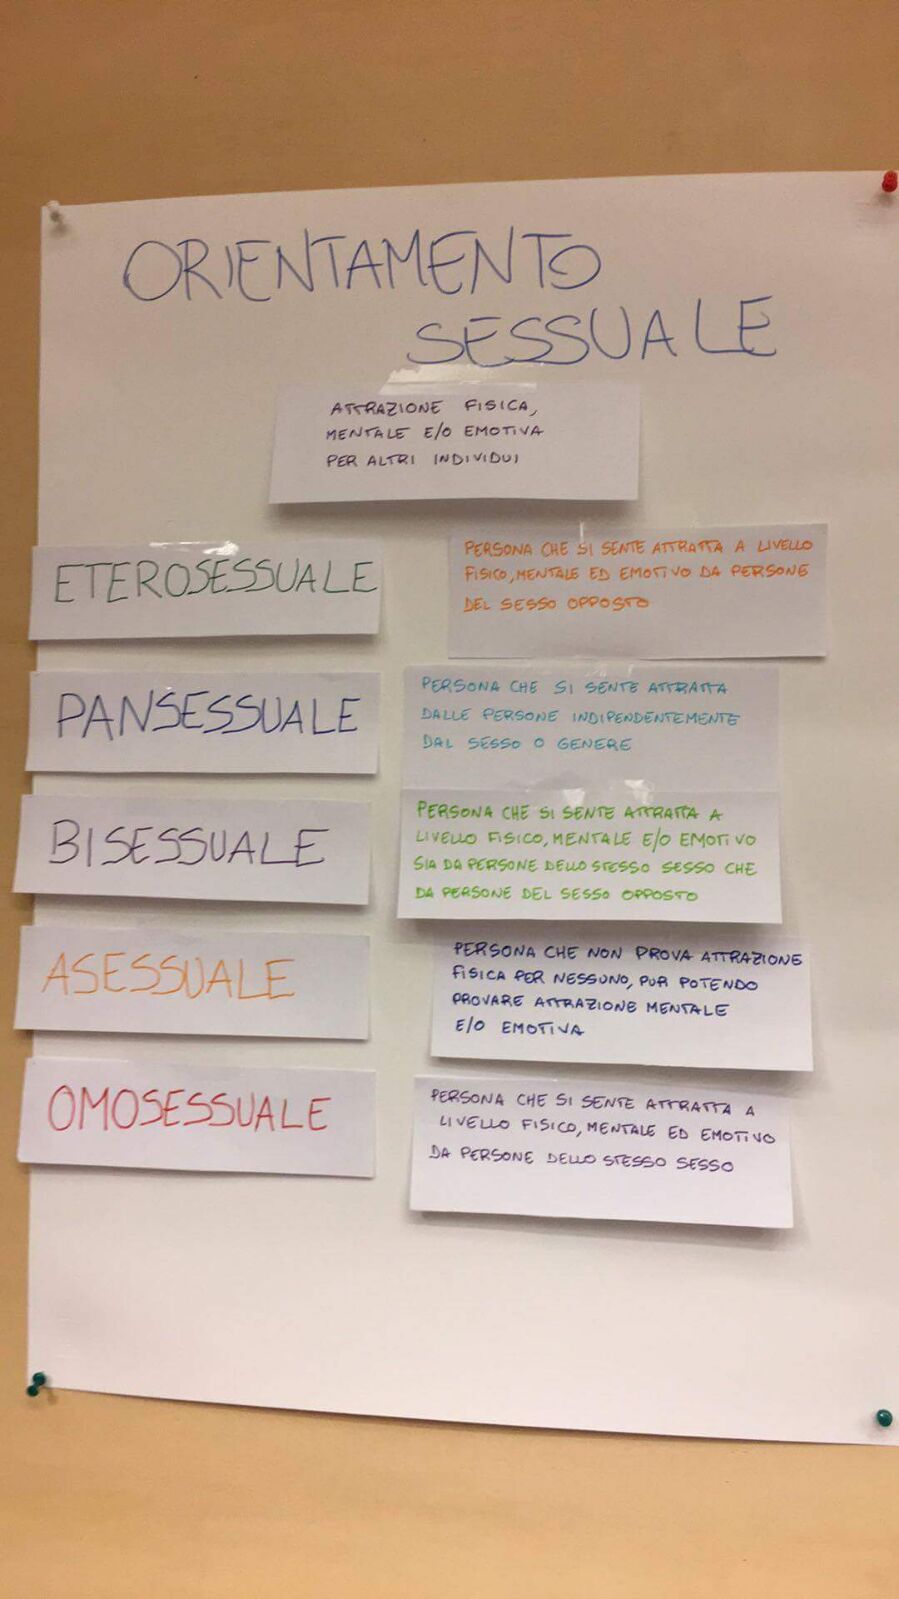 ORIENTAMENTO
SESSUALE
ATTRAZIONE FISICA,
MENTALE E/O EMOTIVA
PER ALTRI INDIVIDUI
ETEROSESSUALE
PERSONA CHE SI SENTE ATTRATTA A LIVELLO
FISICO, MENTALE ED EMOTIVO DA PERSONE
DEL SESSO OPPOSTO
PANSESSUALE
PERSONA CHE SI SENTE ATTRATTA
DALLE PERSONE INDIPENDENTEMENTE
DAL SESSO O GENERE
BISESSUALE
PERSONA CHE SI SENTE ATTRATTA A
LIVELLO FISICO, MENTALE E/O EMOTIVO
SIA DA PERSONE DELLO STESSO SESSO CHE
DA PERSONE DEL SESSO OPPOSTO
ASESSUALE
PERSONA CHE NON PROVA ATTRAZIONE
FISICA PER NESSUNO, PUR POTENDO
PROVARE ATTRAZIONE MENTALE
E/O EMOTIVA
OMOSESSUALE
PERSONA CHE SI SENTE ATTRATTA A
LIVELLO FISICO, MENTALE ED EMOTIVO
DA PERSONE DELLO STESSO SESSO